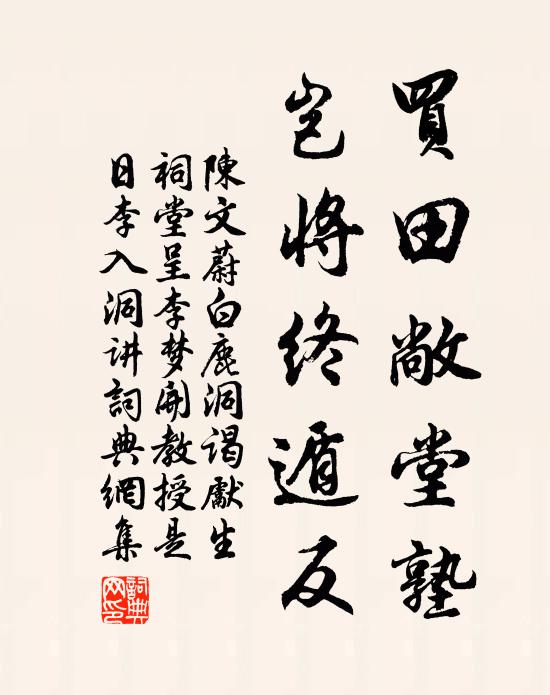 買田敞堂塾
豈將終遁反
陳文蔚白鹿洞謁獻生
祠堂呈李梦開教授是
日李入洞讲詞典網集
詞典网印